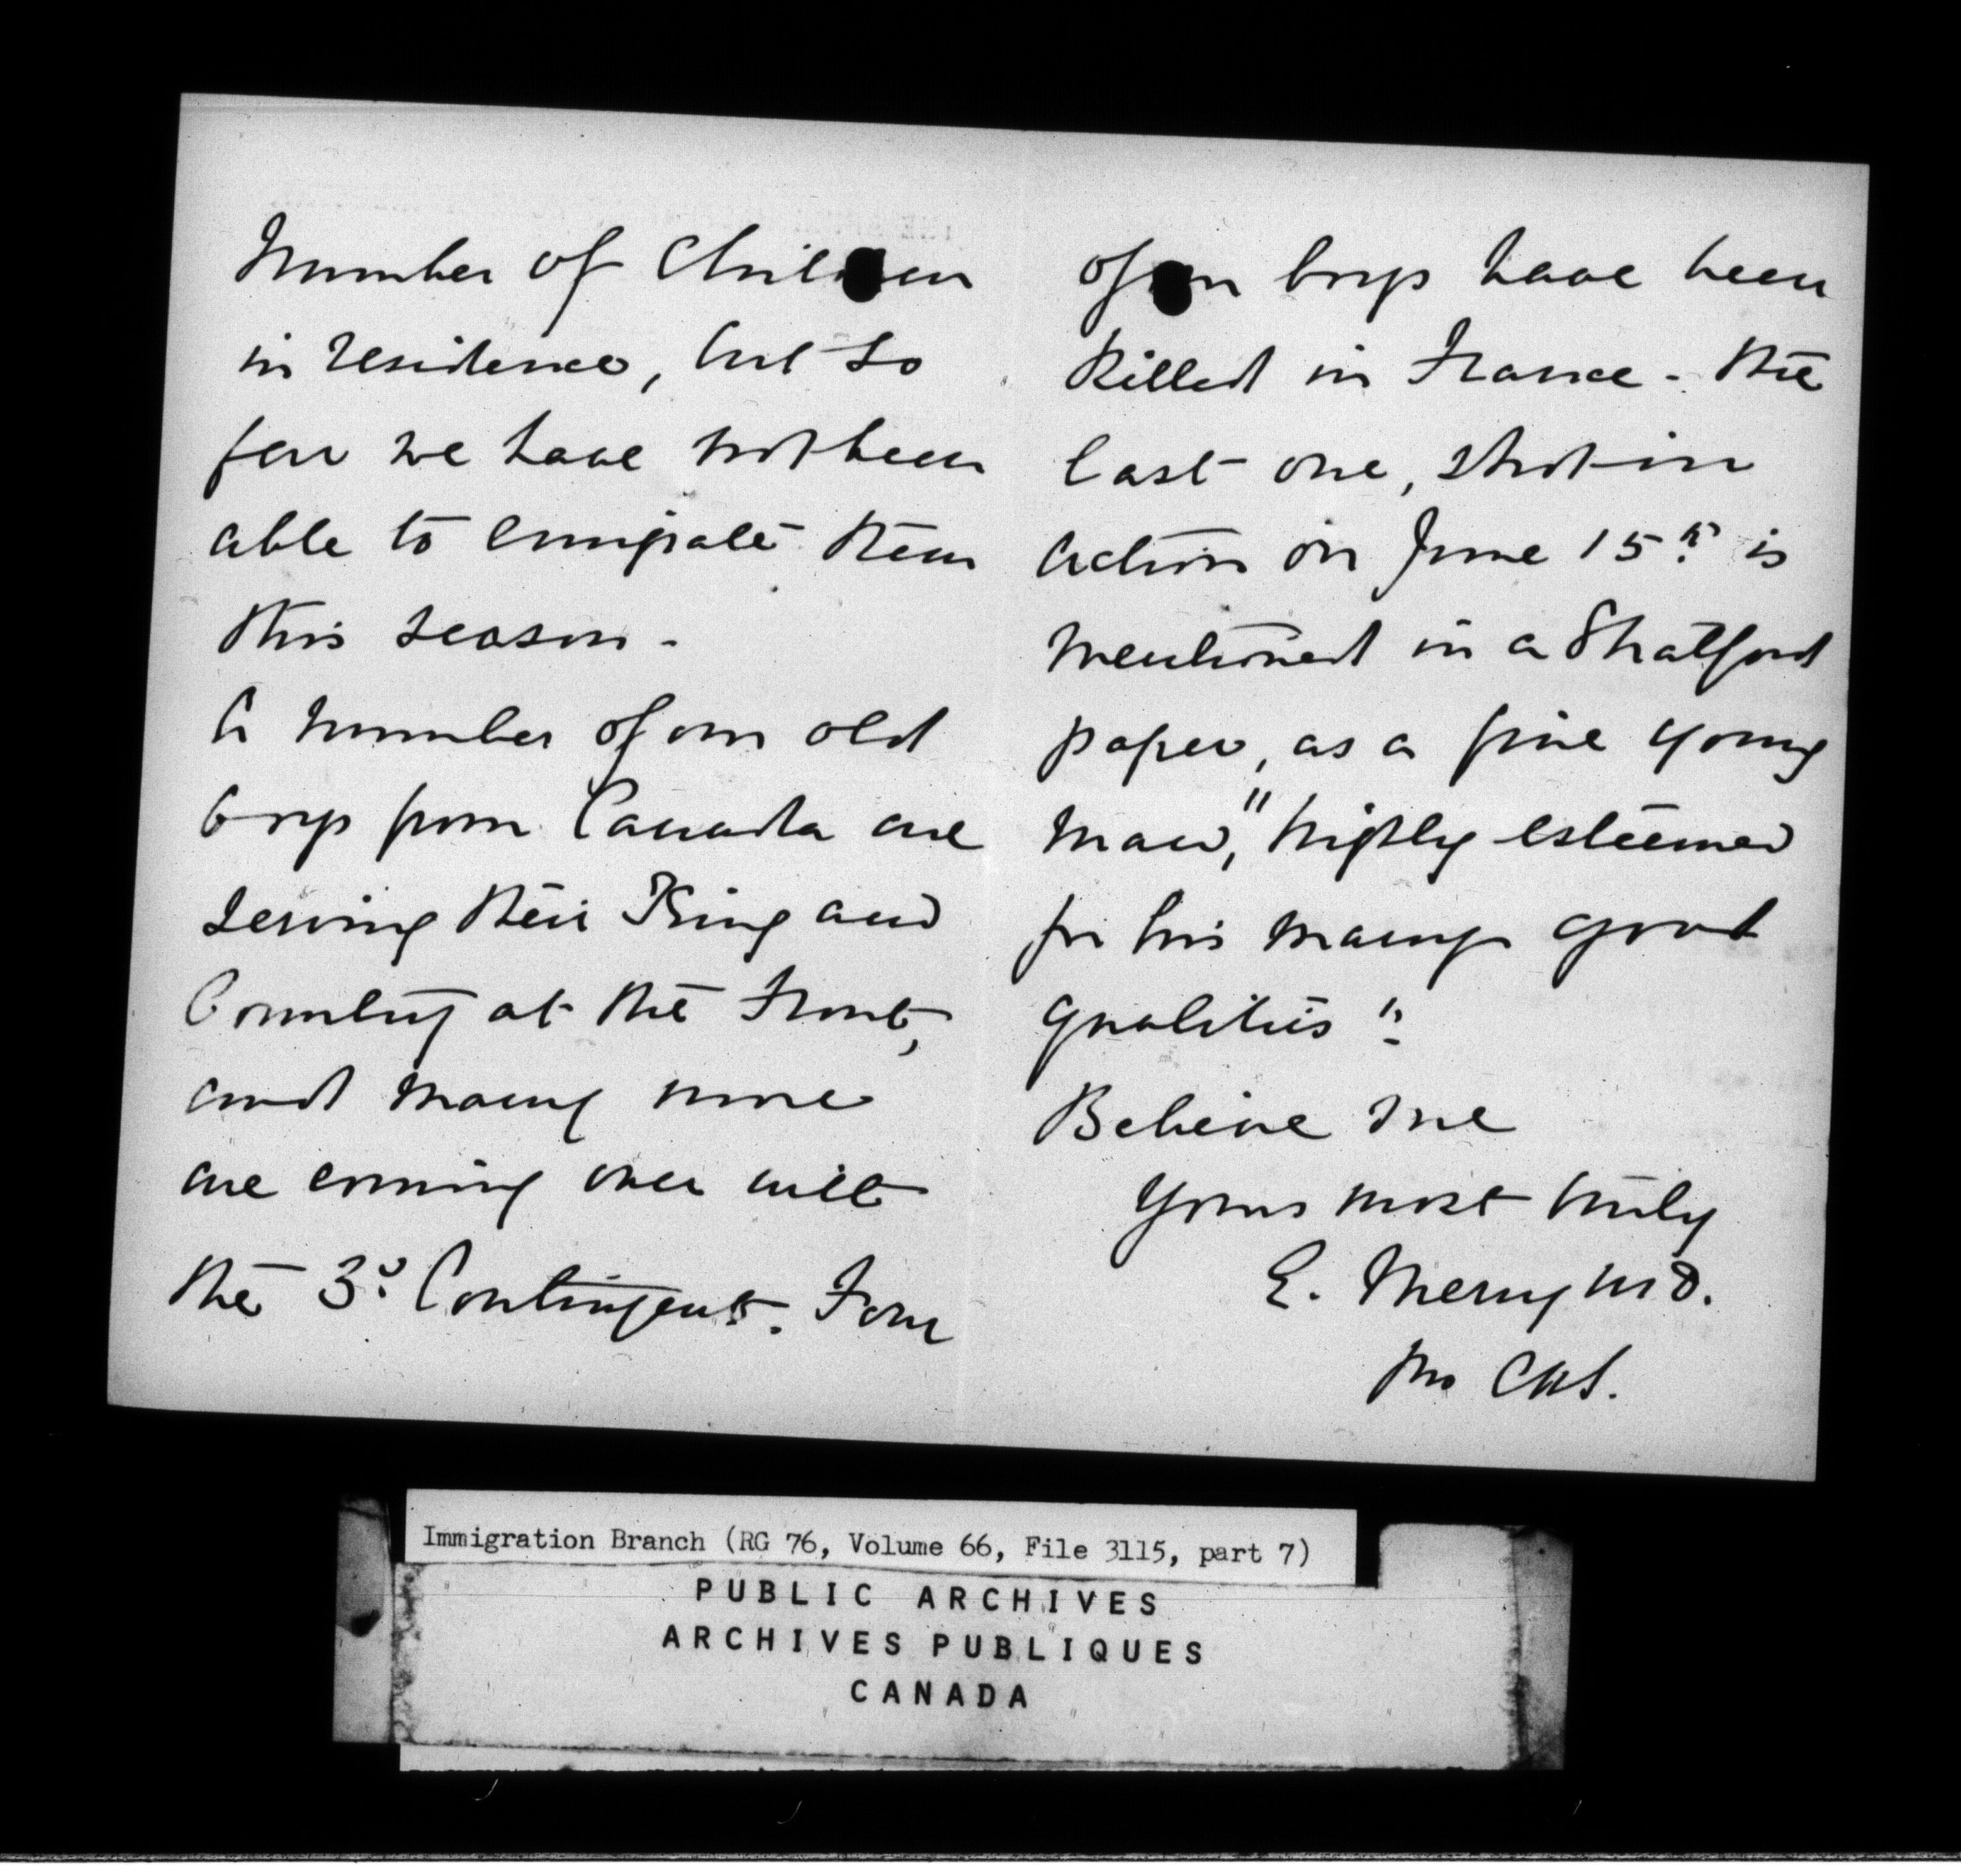 Number of Children
in residence, but so
few we have not been
able to emigrate them
this season -
A number of our old
boys from Canada are
serving their King and
Country at the Front,
and many more
are coming over with
the 3d. Contingent. Four
of our boys have been
killed in France - the
last one, shot in
action on June 15th. is
mentioned in a Stratford
paper, as a fine young
man, "highly esteemed
for his many good
qualities".
Believe me
Yours most truly
E. Merry M D.
Immigration Branch (RG 76, Volume 66, File 3115, part 7)
PUBLIC ARCHIVES
ARCHIVES PUBLIQUES
CANADA